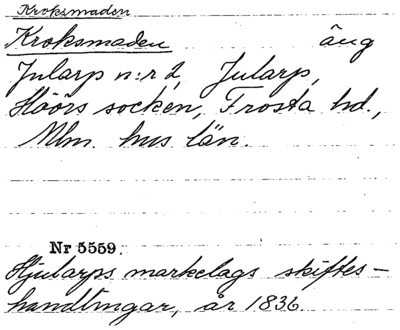 Kroksmaden
Kroksmaden äng
Jularp n:r 2, Jularp,
Höörs socken, Frosta hd.,
Mlm. hus län.
Nr 5559.
Hjularps markelags skiftes-
handlingar, år 1836.